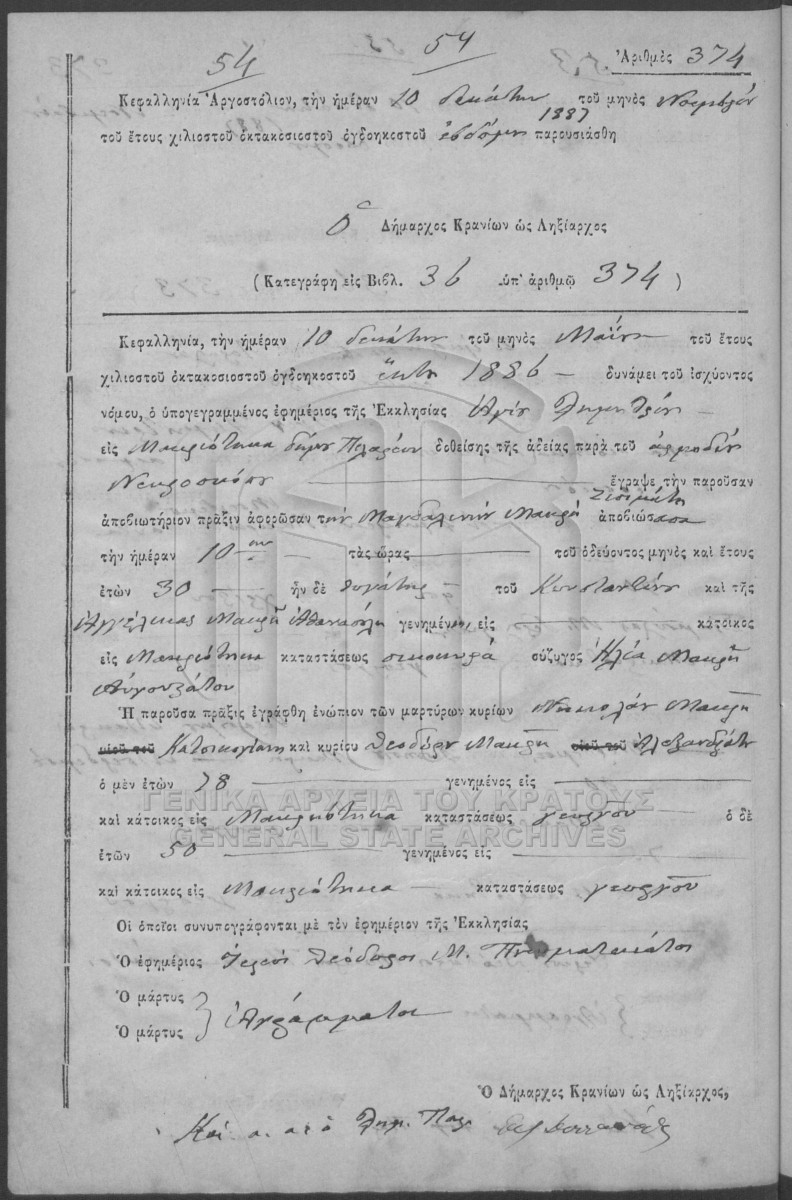 54 54 Ἀριθμὸς 374
Κεφαλληνία Ἀργοστόλιον, τὴν ἡμέραν 10 δεκάτην τοῦ μηνὸς Νοεμβρίου
1887
τοῦ ἔτους χιλιοστοῦ ὀκτακοσιοστοῦ ὀγδοηκοστοῦ ἑβδόμου παρουσιάσθη
Ὁ Δήμαρχος Κρανίων ὡς Ληξίαρχος
(Κατεγράφη εἰς Βιβλ. 36 ὑπ' ἀριθμῷ 374)
Κεφαλληνία, τὴν ἡμέραν 10 δεκάτην τοῦ μηνὸς Μαΐου τοῦ ἔτους
χιλιοστοῦ ὀκτακοσιοστοῦ ὀγδοηκοστοῦ ἕκτου 1886 — δυνάμει τοῦ ἰσχύοντος
νόμου, ὁ ὑπογεγραμμένος ἐφημέριος τῆς Ἐκκλησίας Ἁγίου Δημητρίου
εἰς Μακριώτικα δήμου Πυλαρέων δοθείσης τῆς ἀδείας παρὰ τοῦ ἁρμοδίου
Νεκροσκόπου ἔγραψε τὴν παροῦσαν
ἀποβιωτήριον πρᾶξιν ἀφορῶσαν τὴν Μαγδαληνὴν Μακρῆ ἀποβιώσασα
τὴν ἡμέραν 10ην — τὰς ὥρας — τοῦ ὁδεύοντος μηνὸς καὶ ἔτους
ἐτῶν 30 — ἦν δὲ θυγάτηρ τοῦ Κωνσταντίνου καὶ τῆς
Ἀγγέλικας Μακρῆ γενημένη, εἰς — κάτοικος
εἰς Μακριώτικα καταστάσεως οἰκοκυρὰ σύζυγος Ἠλία Μακρῆ
Αὐγουστάτου
Ἡ παροῦσα πρᾶξις ἐγράφθη ἐνώπιον τῶν μαρτύρων κυρίων Νικολάου Μακρῆ
υἱοῦ τοῦ Κατσικογιάννη καὶ κυρίου Θεοδώρου Μακρῆ υἱοῦ τοῦ Ἀλεξανδράτου
ὁ μὲν ἐτῶν 78 — γενημένος εἰς —
καὶ κάτοικος εἰς Μακριώτικα καταστάσεως γεωργοῦ ὁ δὲ
ΓΕΝΙΚΑ ΑΡΧΕΙΑ ΤΟΥ ΚΡΑΤΟΥΣ
GENERAL STATE ARCHIVES
ἐτῶν 50 — γενημένος εἰς —
καὶ κάτοικος εἰς Μακριώτικα — καταστάσεως γεωργοῦ
Οἱ ὁποῖοι συνυπογράφονται μὲ τὸν ἐφημέριον τῆς Ἐκκλησίας
Ὁ ἐφημέριος Ἱερεὺς Θεόδωρος Μ. Πνευματικάτος
Ὁ μάρτυς
Ὁ μάρτυς } Ἀγράμματοι
Ὁ Δήμαρχος Κρανίων ὡς Ληξίαρχος,
Δημ. Παρ.